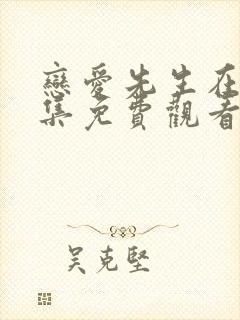 戀愛先生在
集免費觀看
吴克堅